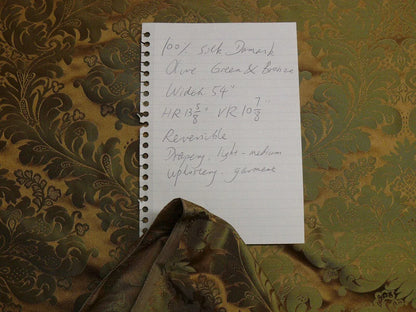 100% Silk Damask
Olive Green & Bronze
Width 54"
HR 13 5/8" VR 10 7/8"
Reversible
Drapery, light-medium
upholstery, garment